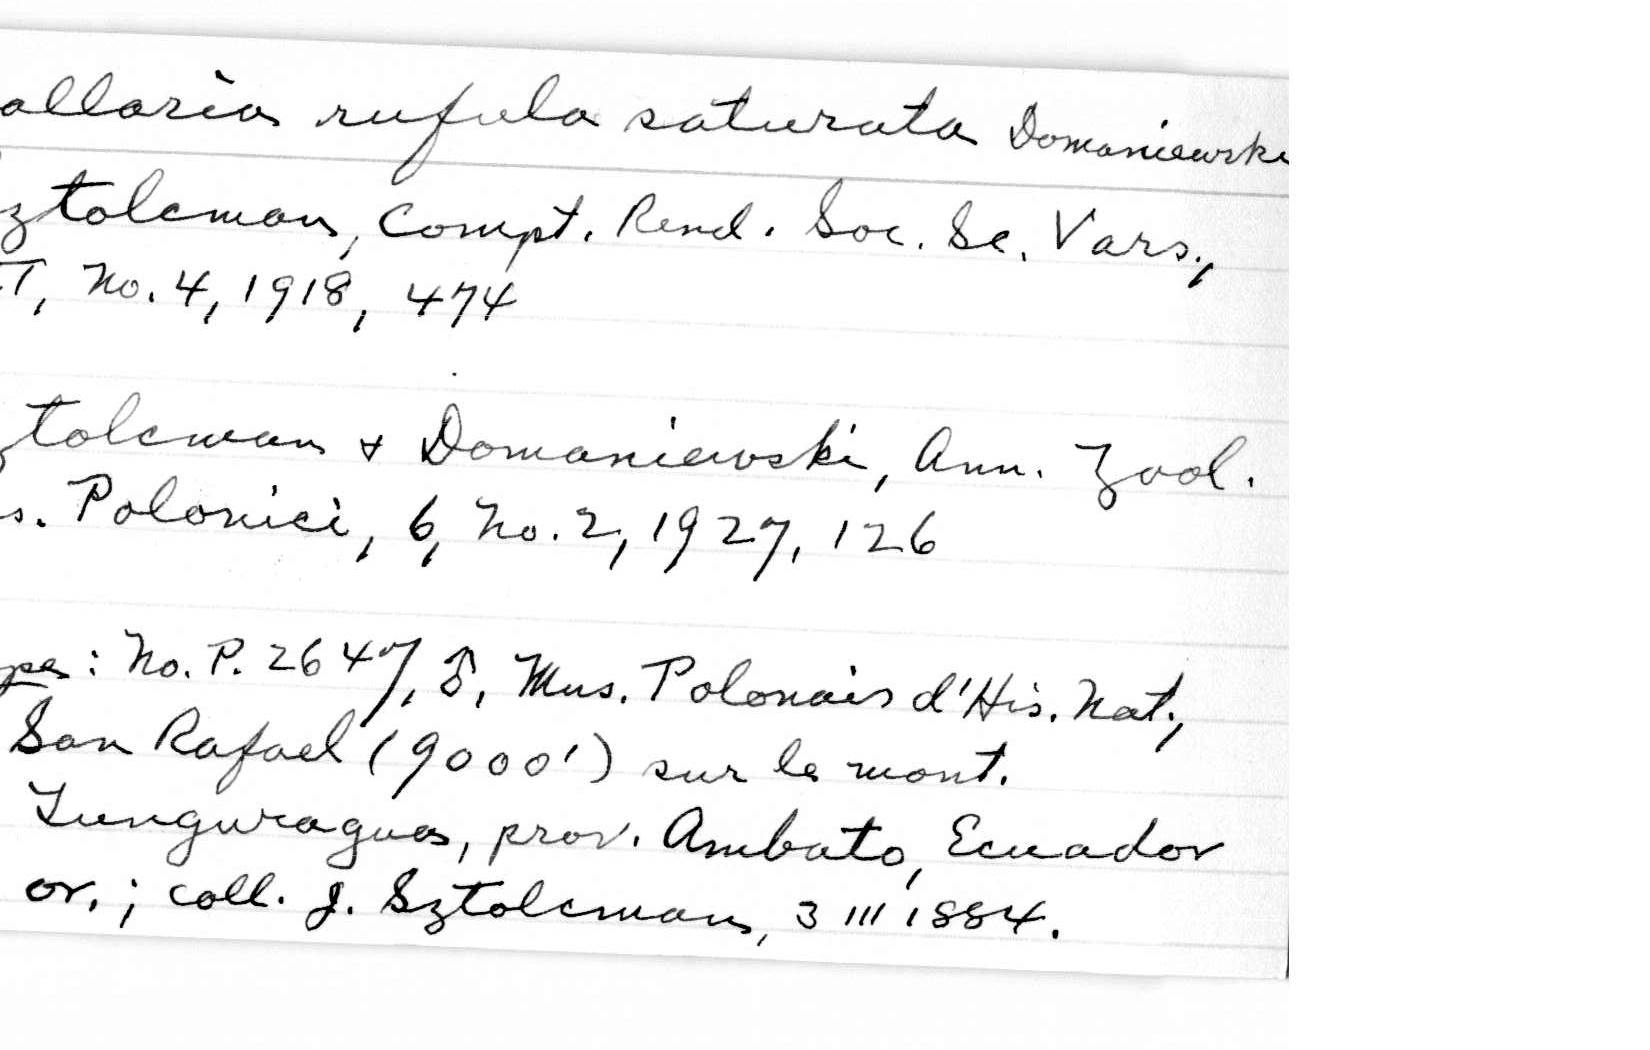 allaria rufula saturata Domaniewski
ztolcman, Compt. Rend. Soc. Sc. Vars.,
I, No. 4, 1918, 474
ztolcman & Domaniewski, Ann. Zool.
s. Polonici, 6, No. 2, 1927, 126
ype: No. P. 2647, ♂, Mus. Polonais d'His. Nat.,
San Rafael (9000') sur le mont.
Tunguragua, prov. Ambato, Ecuador
or.; coll. J. Sztolcman, 3 III 1884.